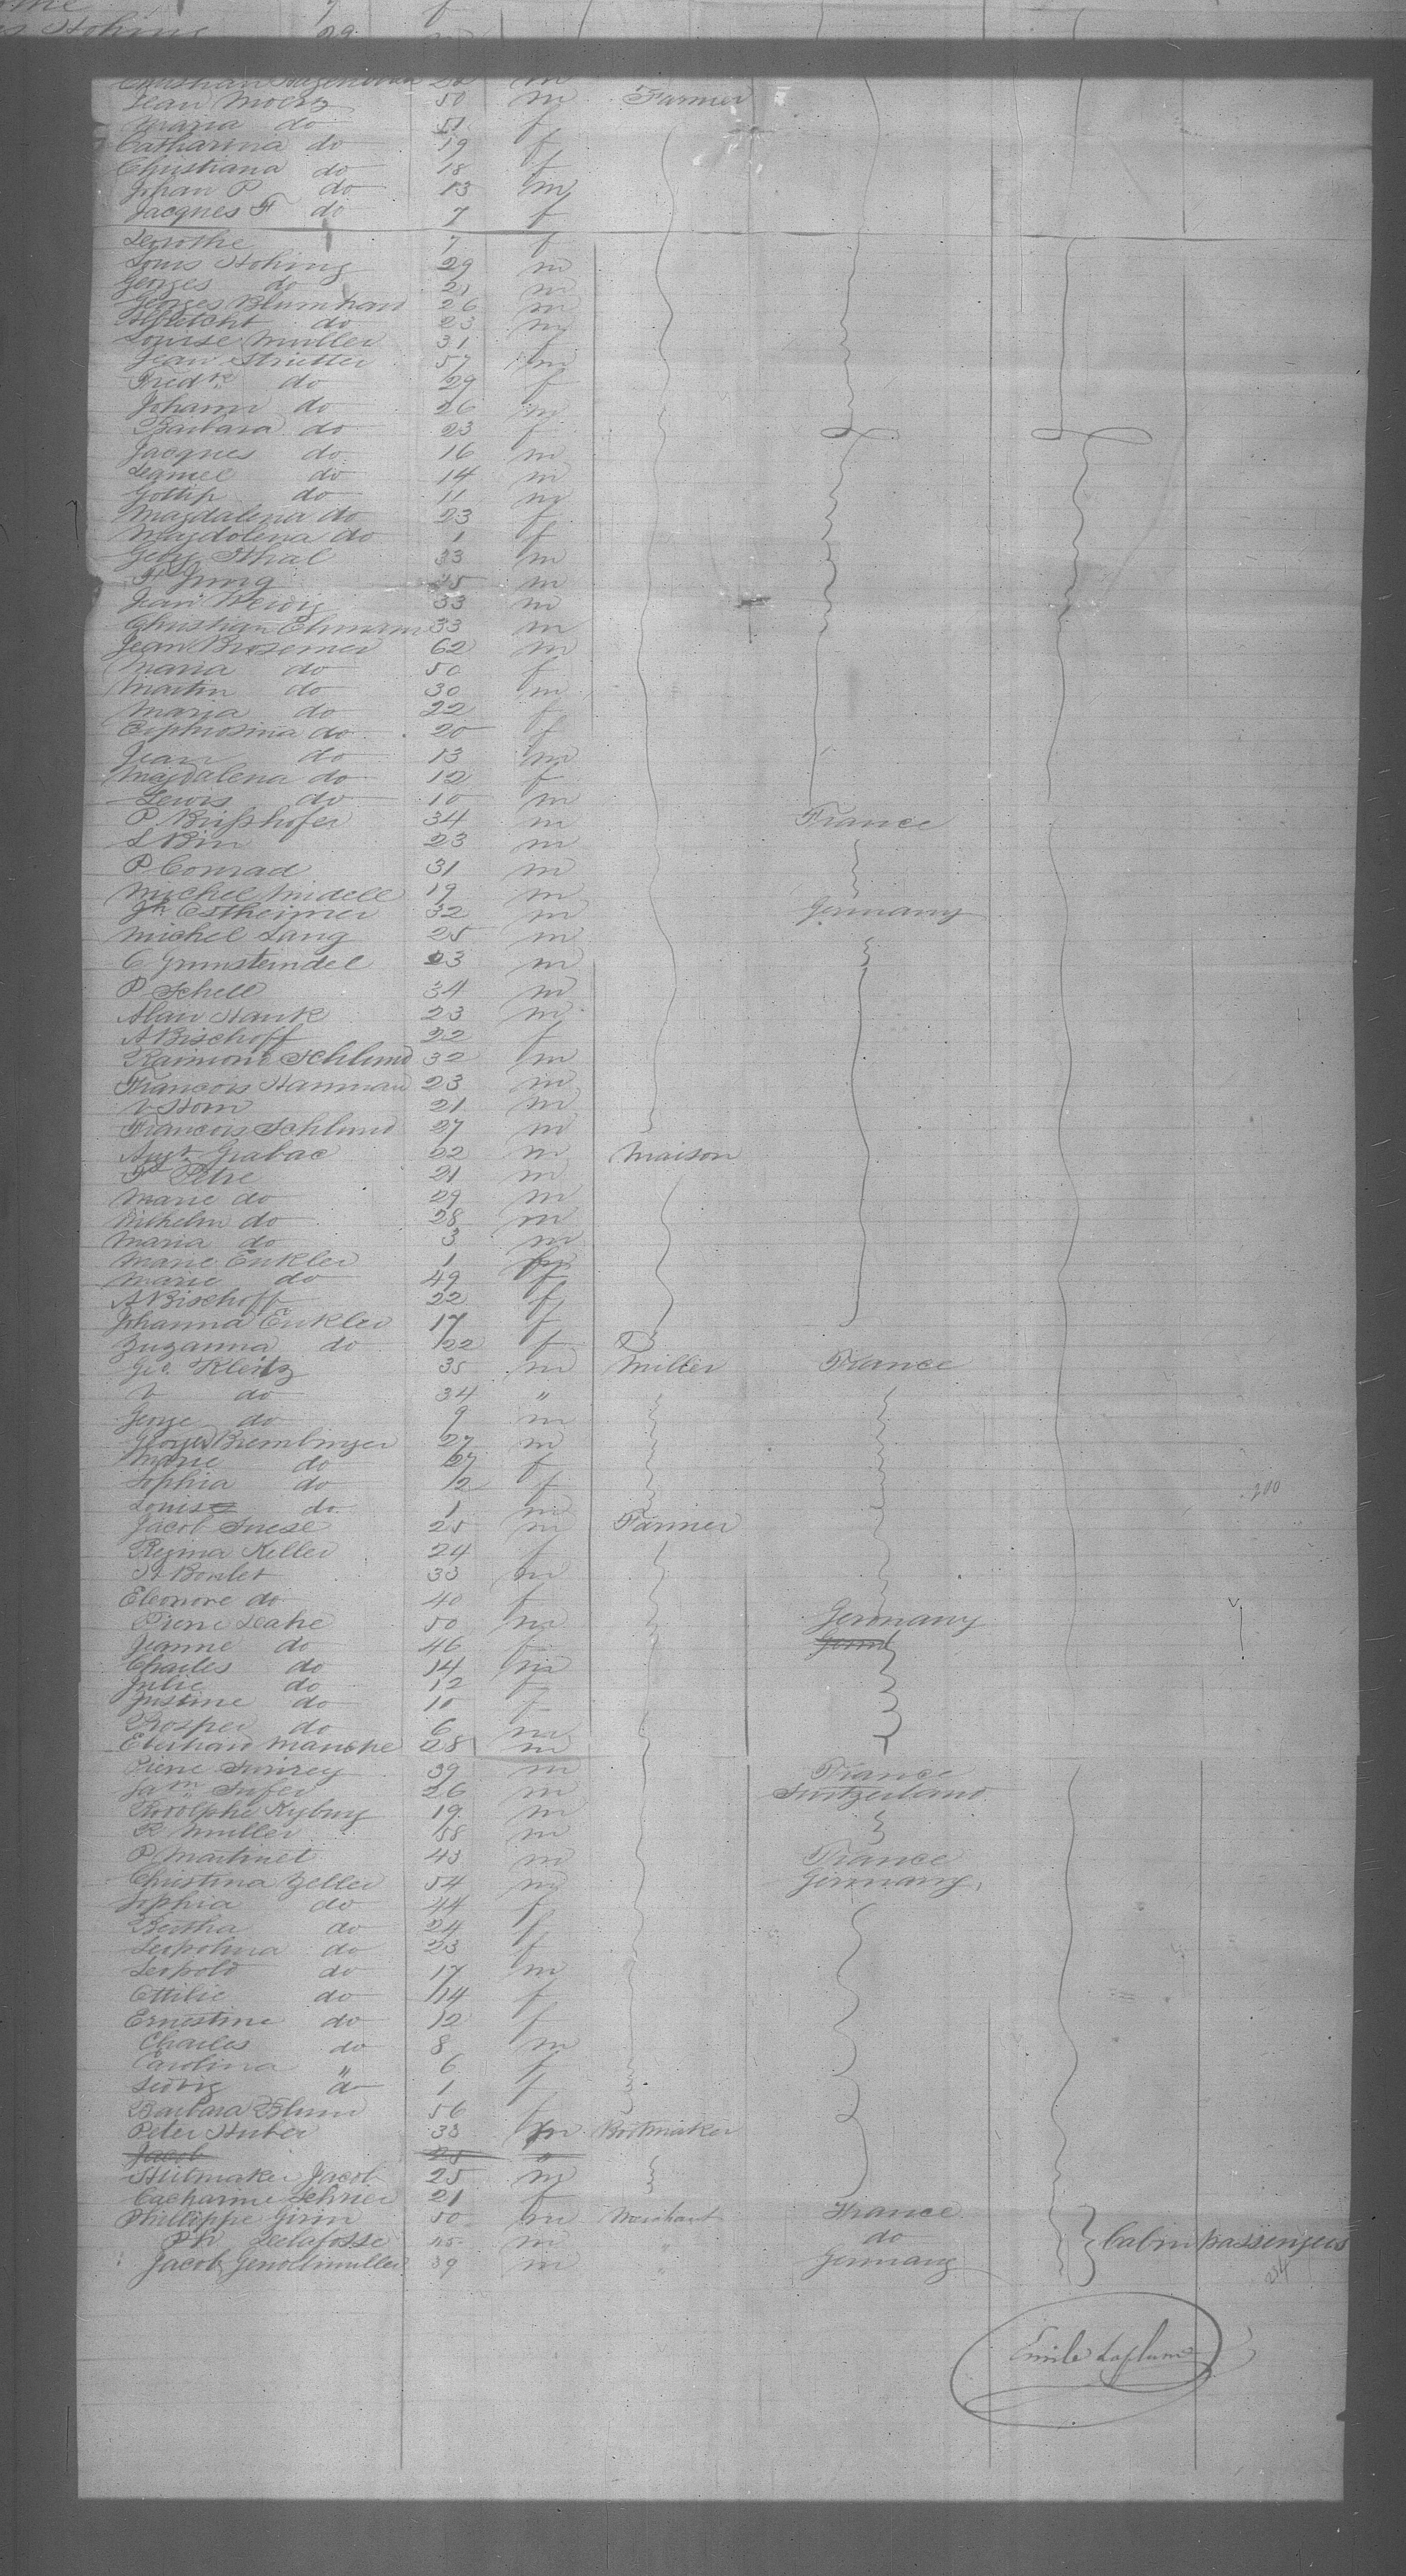 Jean Moerz 50 m Farmer
Maria do 51 f
Catharina do 19 f
Christiana do 18 f
Johan P do 13 m
Jacques F do 7 f
Dorothe 7 f
Louis Hohing 29 m
Georges do 21 m
Georges Blumhard 26 m
Albrecht do 23 m
Louise Muller 31 f
Jean Strietter 57 m
Fredke do 29 f
Johann do 26 m
Barbara do 23 f
Jacques do 16 m
Daniel do 14 m
Gottlip do 11 m
Magdalena do 23 f
Magdolena do 1 f
Georg Sthal 33 m
Fd Jung m
Jean 33 m
Christian Ehmann 33 m
Jean Brosemer 62 m
Maria do 50 f
Martin do 30 m
Maria do 22 f
Euphrosina do 20 f
Jean do 13 m
Magdalena do 12 f
Lewis do 10 m
P Brishofer 34 m France
L Bin 23 m
P Conrad 31 m
Michel Midell 19 m
Jh Estheimer 32 m Germany
Michel Lang 25 m
C Grunsteindel 23 m
P Schell 34 m
Alan Hauk 23 m
A Bischoff 22 f
Raimond Schlund 32 m
Francois Hamman 23 m
V Horn 21 m
Francois Schlund 27 m
Augt Grabac 22 m Maison
Fd Petre 21 m
Marie do 29 m
Wilhelm do 28 m
Maria do 3 m
Marie Enkler 1
Marie do 49 f
A Bischoff 22 f
Johanna Enkler 17 f
Zuzanna do 22 f
Geo. Kleitz 35 m Miller France
V do 34 "
George do 9 m
Georges Brembinger 27 m
Marie do 27 f
Sophia do 12 f
Louis do 1 m
Jacob Suese 25 m Farmer
Regina Keller 24 f
N Boulet 33 m
Eleonore do 40 f
Pierre Leahe 50 m Germany
Jeanne do 46 f
Charles do 14 m
Julie do 12 f
Justine do 10 f
Prosper do 6 m
Eberhard Manche 28 m
Pierre Surirey 39 m France
Jam Sufer 26 m Switzerland
Rodolphe Kyburg 19 m
R Muller 38 m
P Martinet 43 m France
Christina Zeller 54 m Germany
Sophia do 44 f
Bertha do 24 f
Leopolina do 23 f
Leopold do 17 m
Ottilie do 14 f
Ernestine do 12 f
Charles do 8 m
Carolina " 6 f
Ledvig do 1 f
Barbara Blum 56 f
Peter Huber 38 m Bootmaker
Jacob 25 "
Hutmaker Jacob 25 m
Catharine Schrier 21 f
Phillippe Girin 50 m Merchant France
Ph Delafosse 45 m " do Cabin passengers
Jacob Genochmuller 39 m " Germany
Emile Laplume